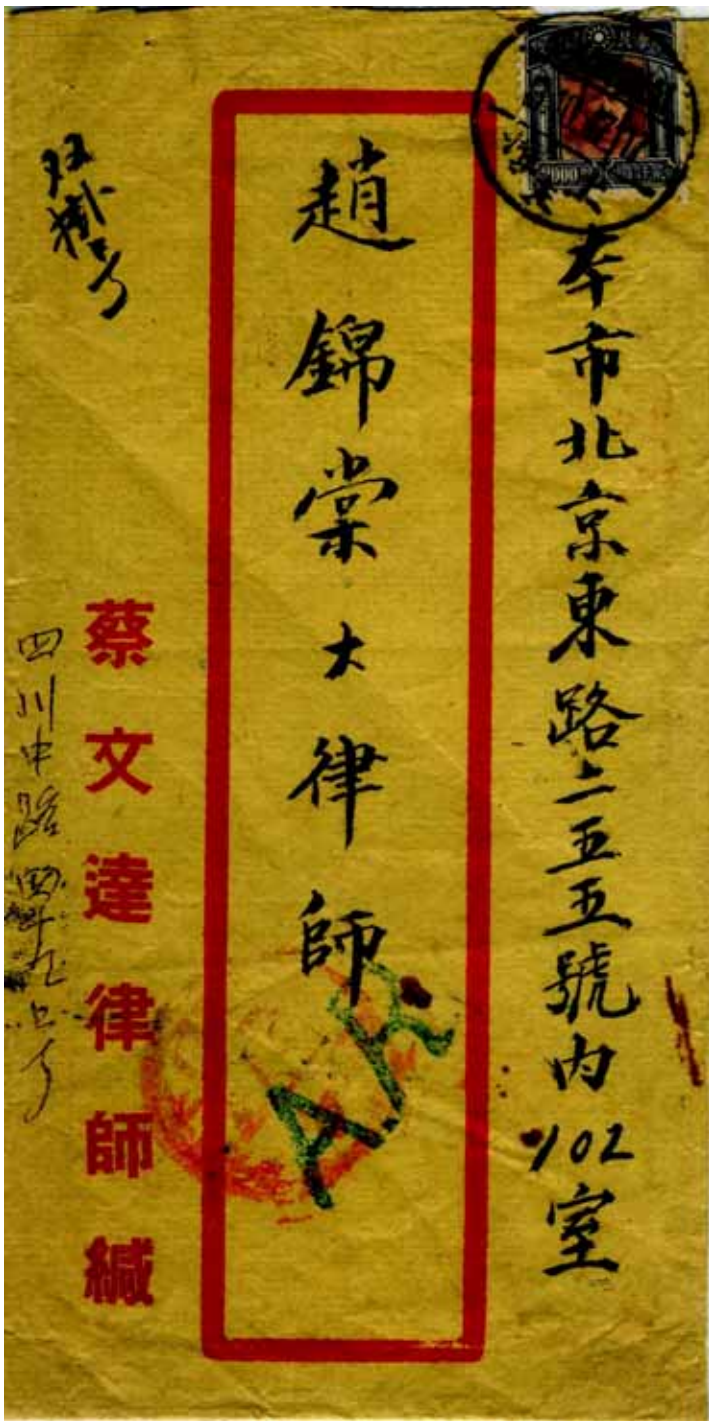 本市北京東路二五五號內102室
趙錦棠大律師
双掛号
蔡文達律師緘
四川中路
A.R.